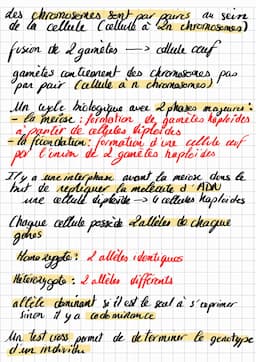 des chromosomes sont par paires au sein
de la cellule (cellule à 2n chromosomes)
fusion de 2 gamètes → cellule œuf
gamètes contiennent des chromosomes pas
par pair (cellule à n chromosomes)
Un cycle biologique avec 2 phases majeures :
- la méiose : formation de gamètes haploïdes
à partir de cellules diploïdes
- la fécondation : formation d'une cellule œuf
par l'union de 2 gamètes haploïdes
Il y a une interphase avant la méiose dans le
but de répliquer la molécule d'ADN
une cellule diploïde → 4 cellules haploïdes
Chaque cellule possède 2 allèles de chaque
gènes
Homozygote : 2 allèles identiques
Hétérozygote : 2 allèles différents
allèle dominant si il est le seul à s'exprimer
sinon il y a codominance
Un test cross permet de déterminer le génotype
d'un individu